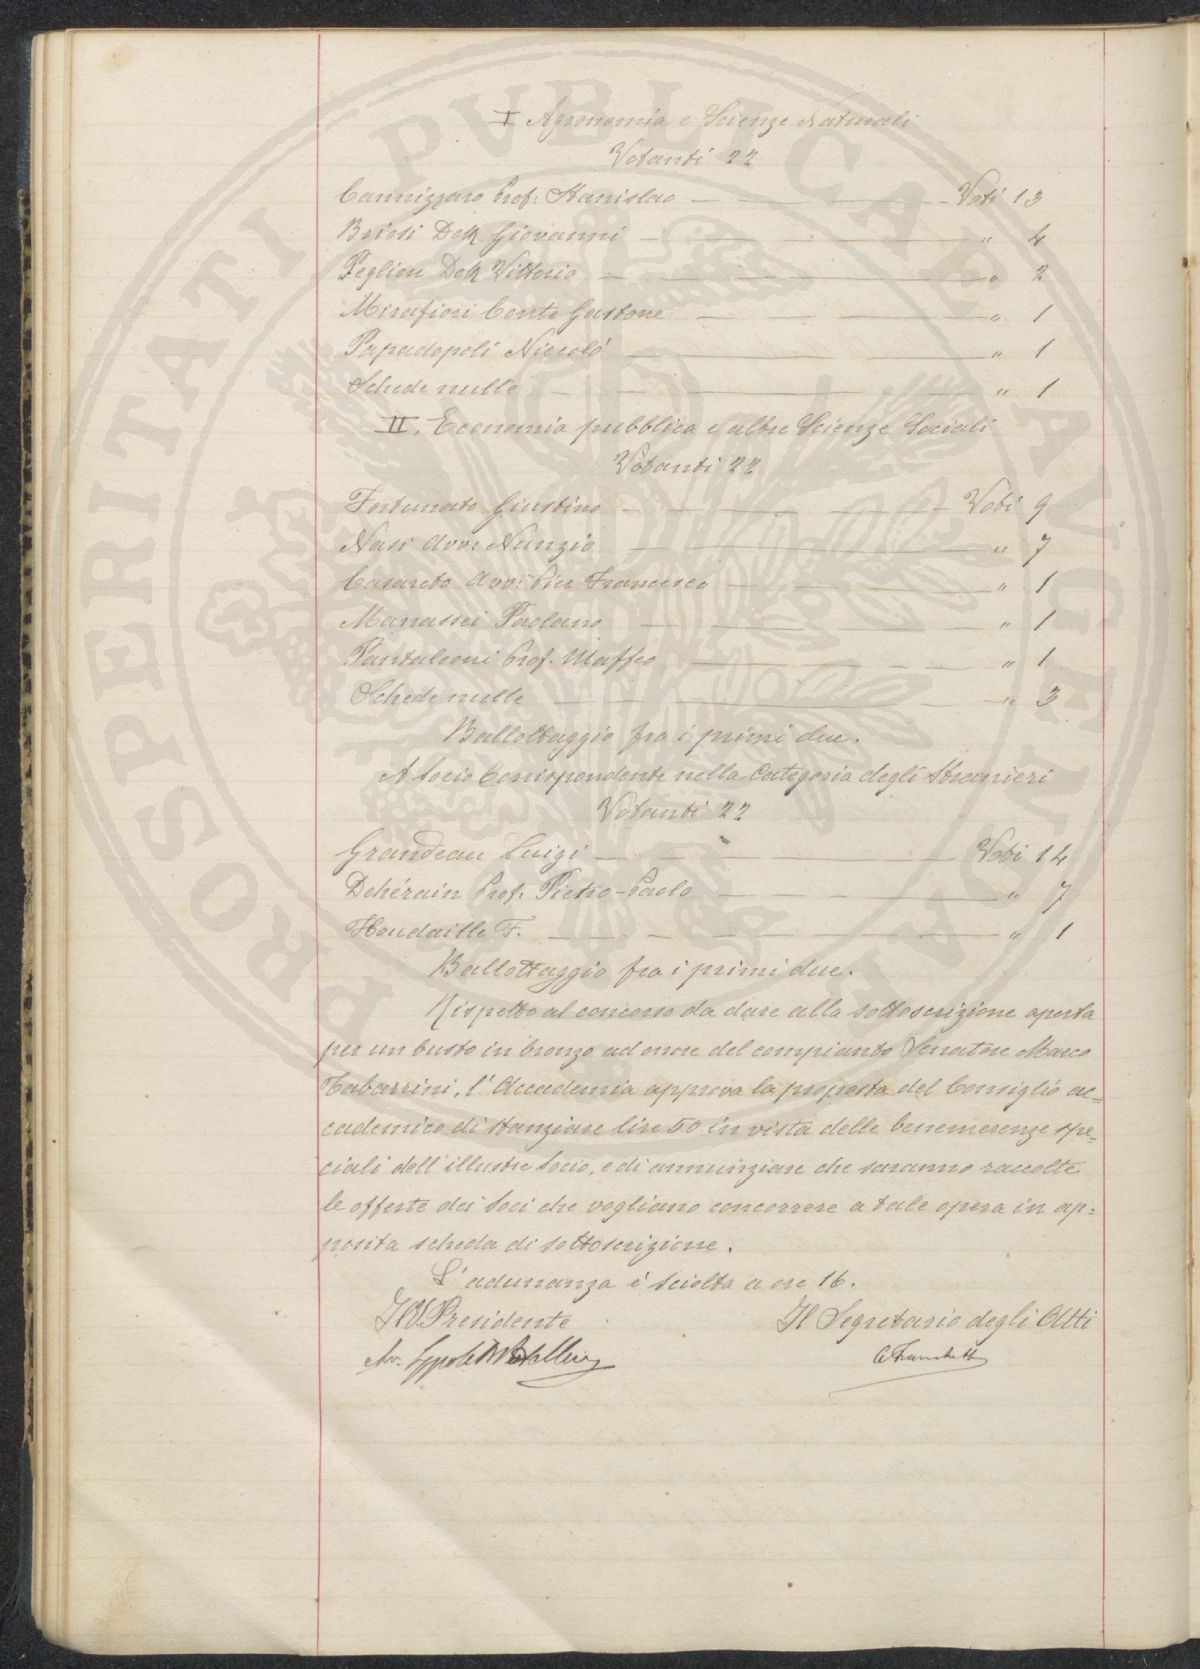 PROSPERITATI PVBLICAE AVGENDAE
I Agronomia e Scienze Naturali
Votanti 22
Cannizzaro Prof. Stanislao — Voti 13
Briosi Dott. Giovanni — " 4
Peglion Dott. Vittorio — " 2
Mirafiori Conte Gastone — " 1
Papadopoli Niccolò — " 1
Schede nulle — " 1
II. Economia pubblica e altre Scienze Sociali
Votanti 22
Fortunato Giustino — Voti 9
Nasi Avv. Nunzio — " 7
Casareto Avv. Pier Francesco — " 1
Manassei Paolano — " 1
Pantaleoni Prof. Maffeo — " 1
Schede nulle — " 3
Ballottaggio fra i primi due.
A Socio Corrispondente nella Categoria degli Stranieri
Votanti 22
Grandeau Luigi — Voti 14
Dehérain Prof. Pietro-Paolo — " 7
Houdaille F. — " 1
Ballottaggio fra i primi due.
Rispetto al concorso da dare alla sottoscrizione aperta
per un busto in bronzo ad onore del compianto Senatore Marco
Tabarrini, l'Accademia approva la proposta del Consiglio ac=
cademico di stanziare lire 50 in vista delle benemerenze spe=
ciali dell'illustre Socio, e di annunziare che saranno raccolte
le offerte dei Soci che vogliano concorrere a tale opera in ap=
posita scheda di sottoscrizione.
L'adunanza è sciolta a ore 16.
Il V. Presidente Il Segretario degli Atti
Avv.